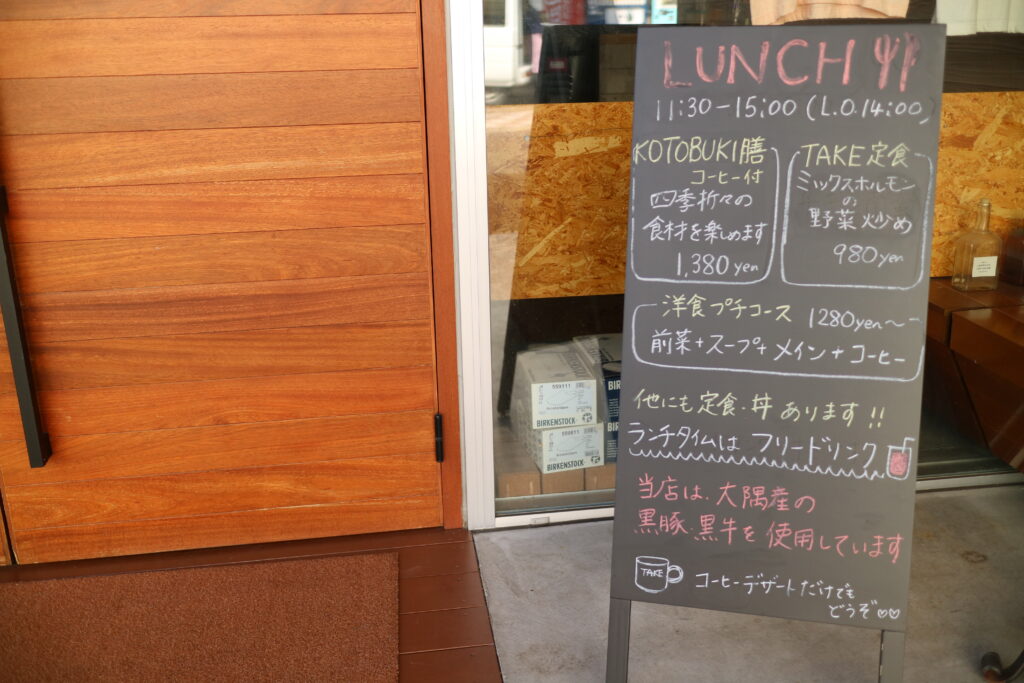 LUNCH
11:30-15:00 (L.O.14:00)
KOTOBUKI膳
コーヒー付
四季折々の
食材を楽しめます
1,380yen
TAKE定食
ミックスホルモン
の
野菜炒め
980yen
洋食プチコース 1280yen~
前菜+スープ+メイン+コーヒー
他にも定食・丼あります!!
ランチタイムは フリードリンク
当店は、大隅産の
黒豚・黒牛を使用しています
TAKE
コーヒーデザートだけでも
どうぞ♡♡
559111
BIRKENSTOCK
BIRKENSTOCK